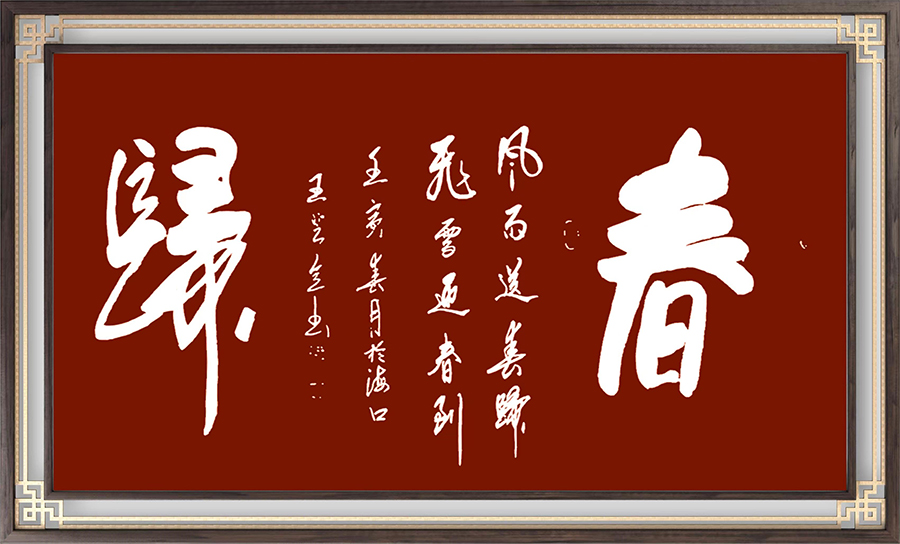 春
风雨送春歸
飛雪迎春到
壬寅春月於海口
王登
歸